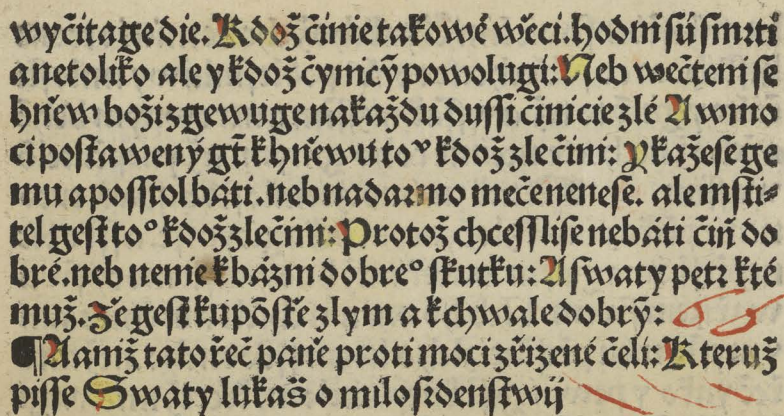 wyčitage die. Kdož činie takowé wěci. hodni sú smrti
a netoliko ale y kdož čynicý powolugi: Neb wečteni se
hněw boží zgewuge na každu dussi činicie zlé A w mo
ci postawený gt̄ k hněwu toᵛ kdož zle čini: Y kaže se ge
mu aposstol báti. neb nadarmo meče nenese. ale msti⸗
tel gest toᵒ kdož zle čini: Protož chcessli se nebáti čiň do
bré. neb nenie k bázni dobreᵒ skutku: A swaty petr kté
muž. Že gest ku pōstře zlym a k chwale dobrȳ:
¶ A aniž tato řeč páně proti moci zřizené čeli: Kteruž
pisse Swaty lukáš o milosrdenstwij